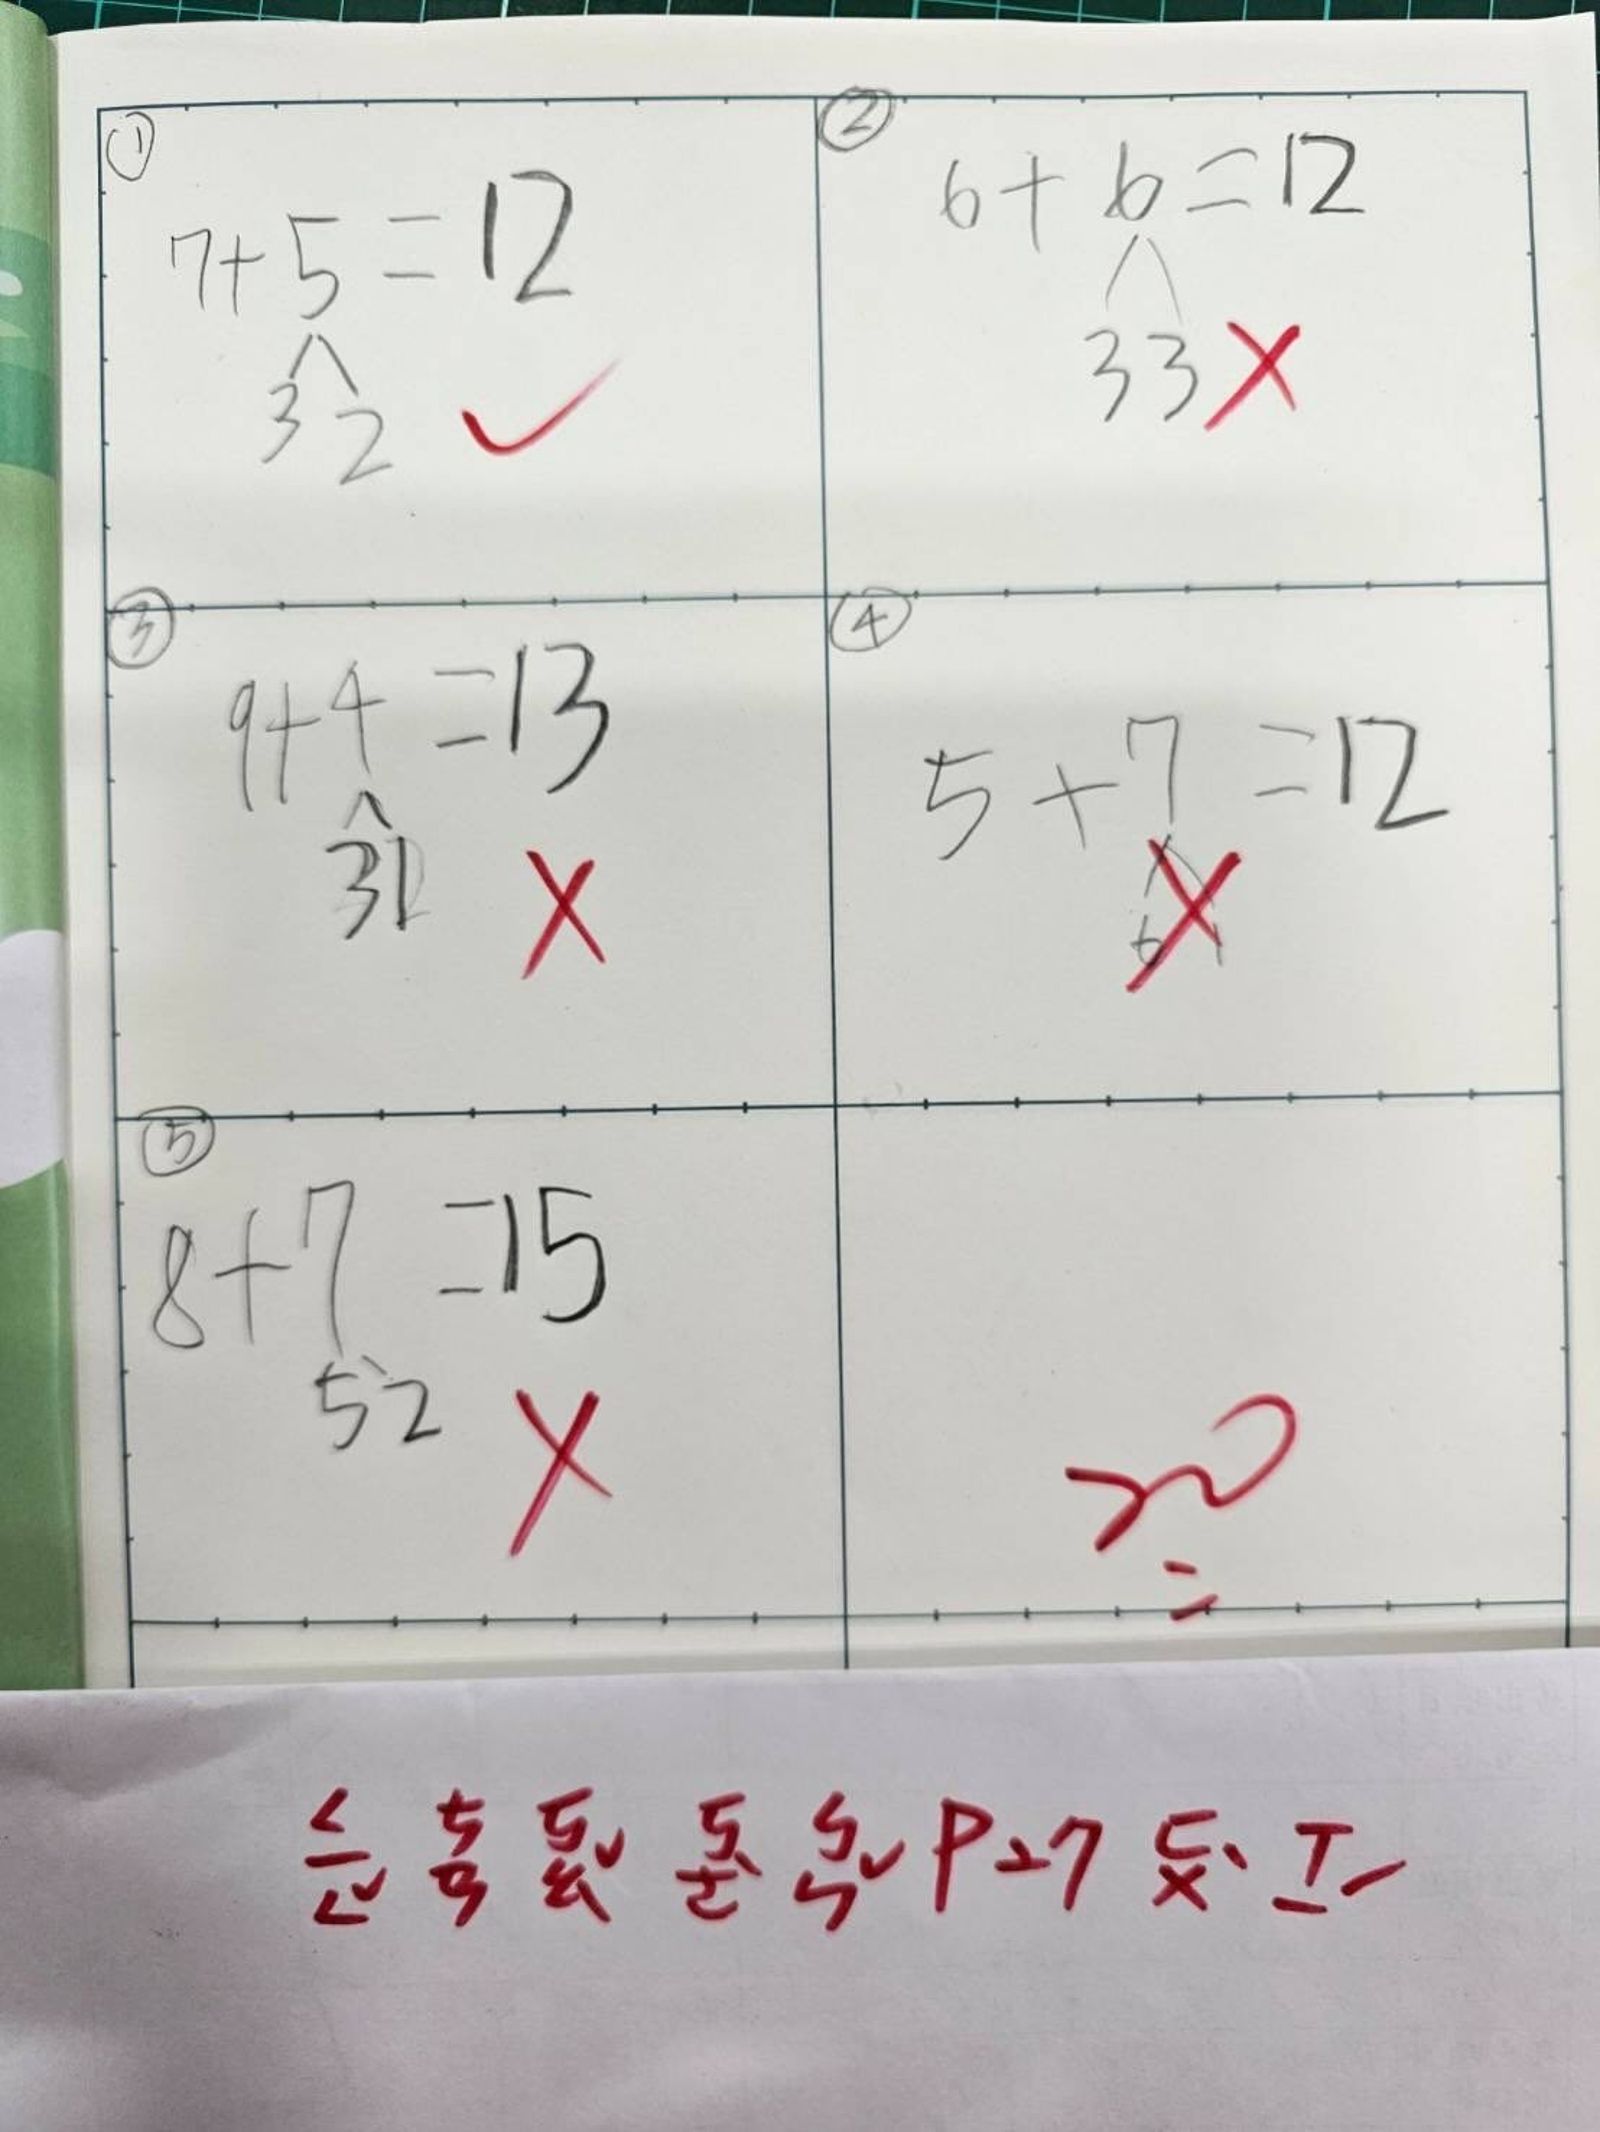 ①
7+5=12
3 2
②
6+6=12
3 3
③
9+4=13
3 1
④
5+7=12
6 1
⑤
8+7=15
5 2
ㄑㄧㄥˇ ㄘㄢ ㄎㄠˇ ㄎㄜˋ ㄅㄣˇ P27 ㄈㄨˋ ㄒㄧˊ